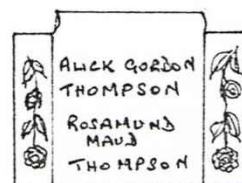 ALICK GORDON
THOMPSON
ROSAMUND
MAUD
THOMPSON